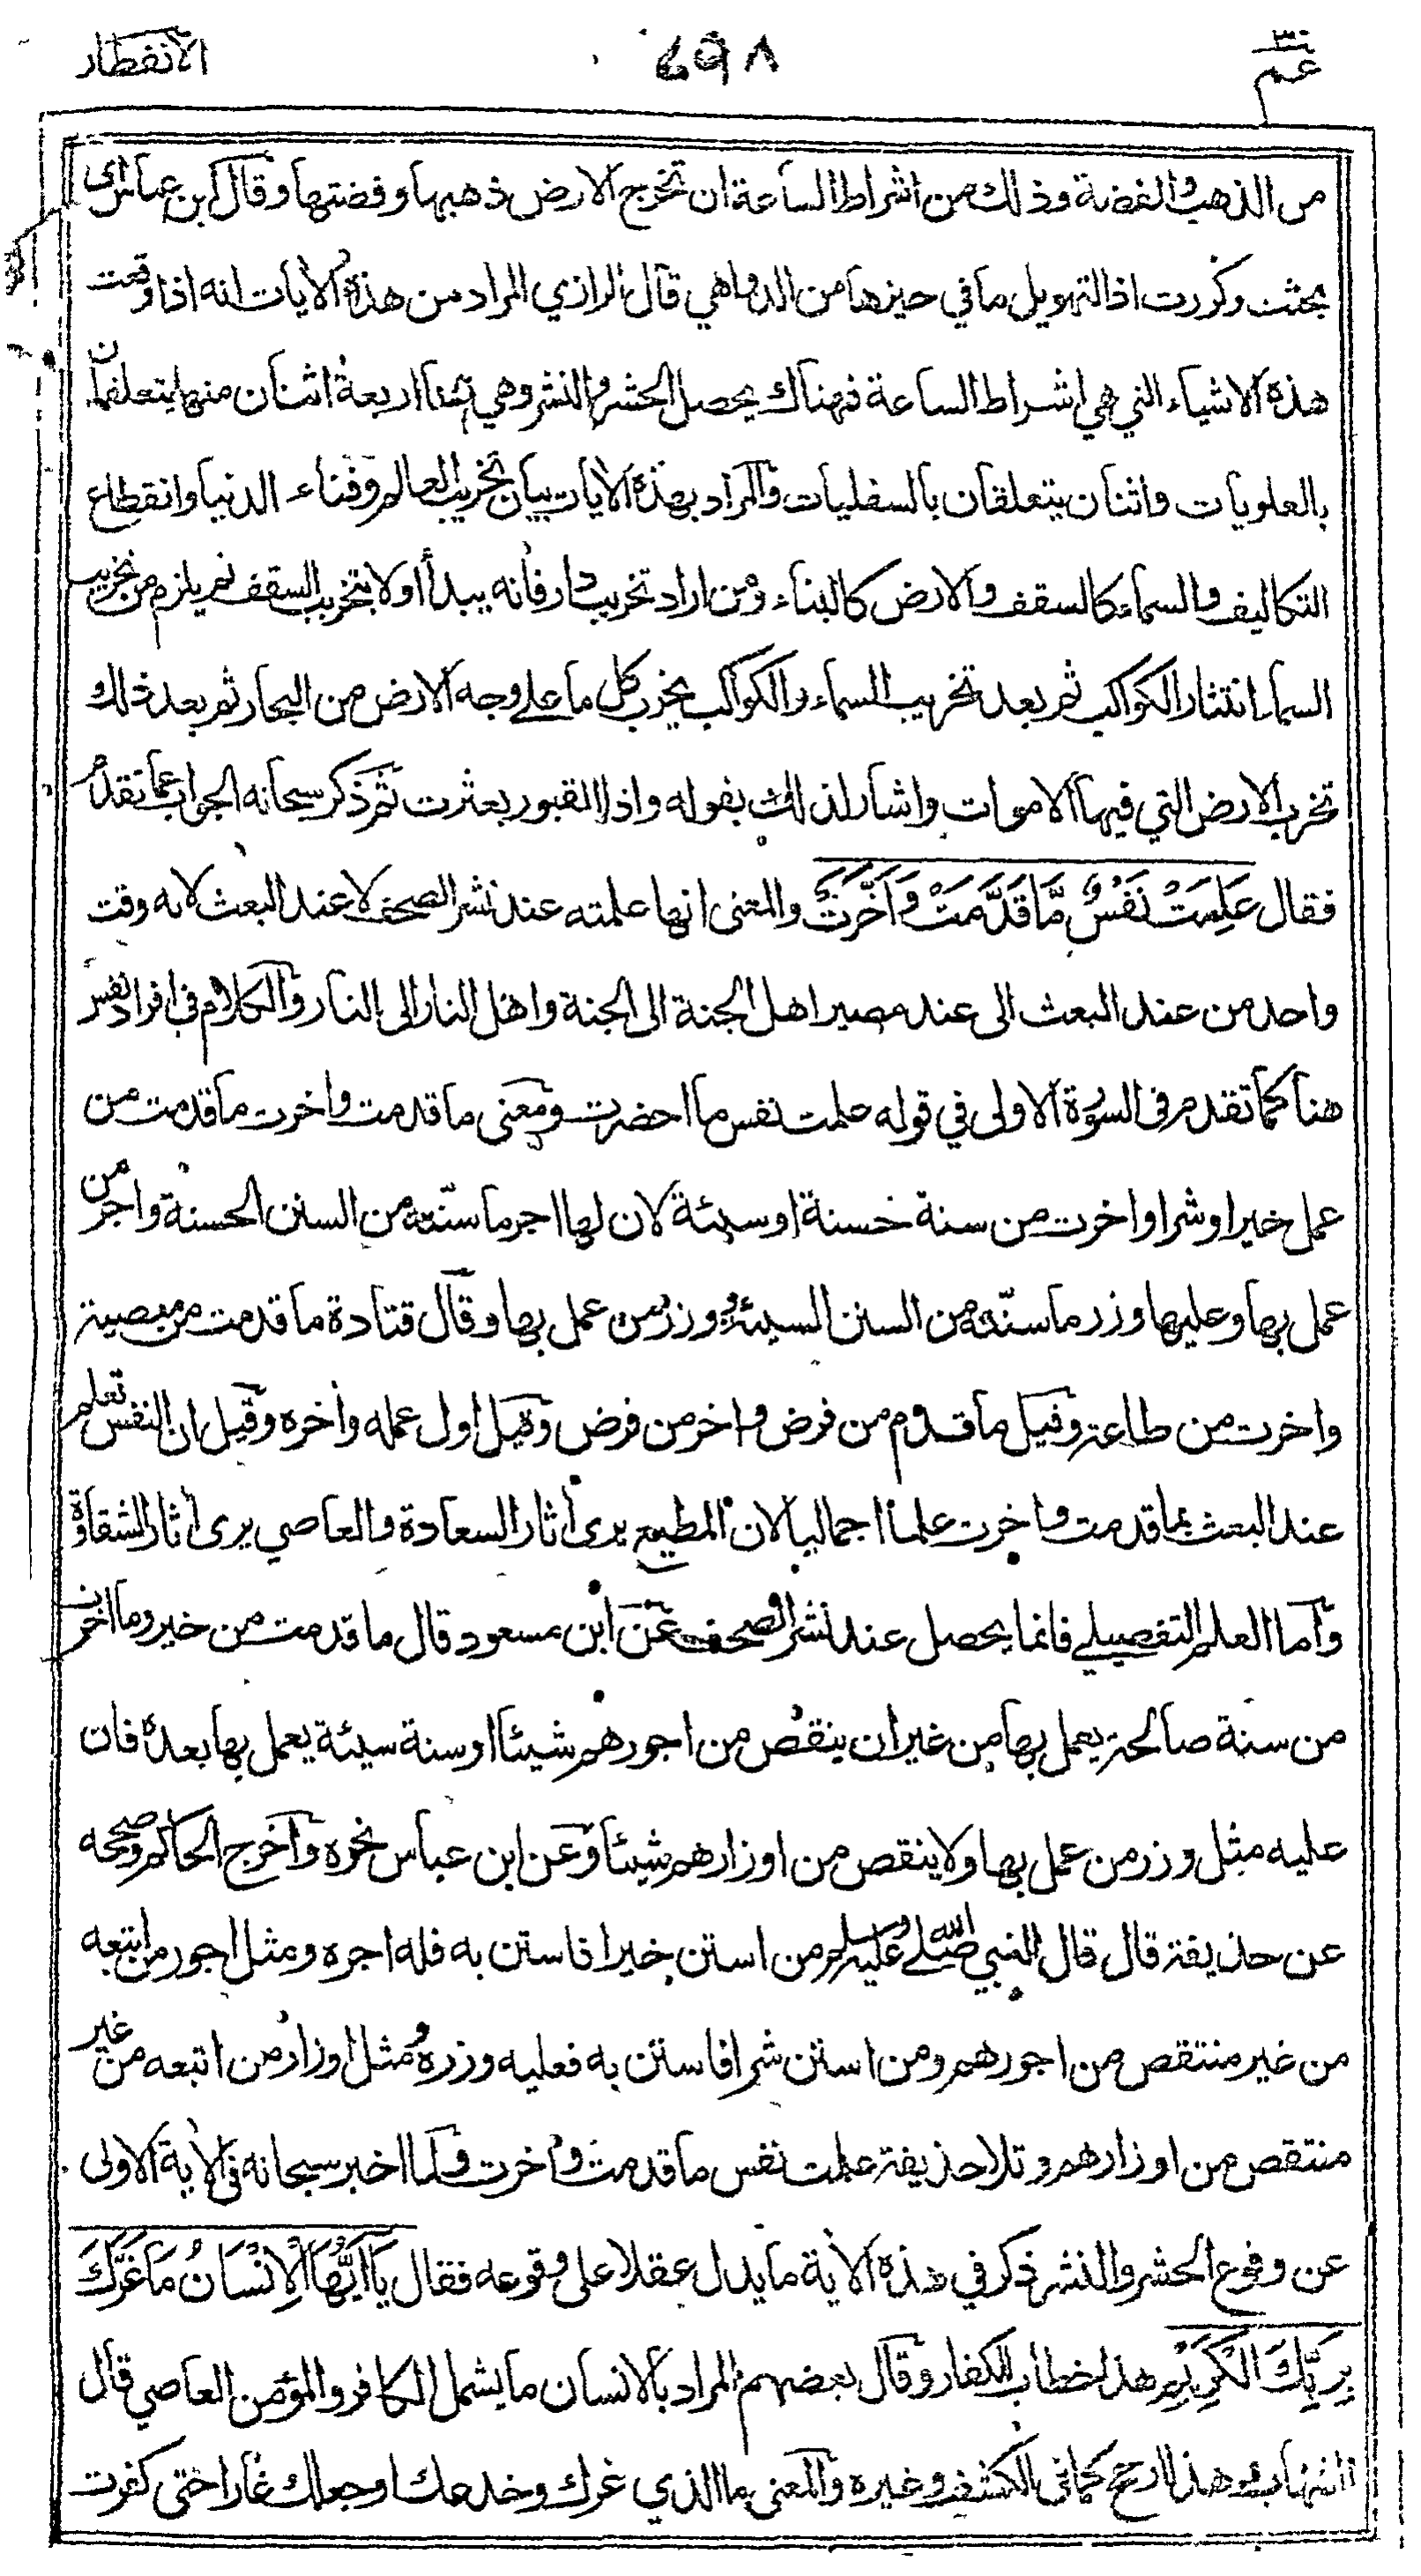 عم ٣٠
٤٩٨
الانفطار
من الذهب والفضة وذلك من اشراط الساعة ان تخرج الارض ذهبها وفضتها وقال ابن عباس اى
بحثت وكررت اذا لتهويل ما في حيزها من الدواهي قال الرازي المراد من هذه الايات انه اذا وقعت
هذه الاشياء التي هي اشراط الساعة فهناك يحصل الحشر والنشر وهي هٰهنا اربعة اثنان منها يتعلقان
بالعلويات واثنان يتعلقان بالسفليات والمراد بهذه الايات بيان تخريب العالم وفناء الدنيا وانقطاع
التكاليف والسماء كالسقف والارض كالبناء ومن اراد تخريب دار فانه يبدأ اولا بتخريب السقف ثم يلزم من تخريب
السماء انتثار الكواكب ثم بعد تخريب السماء والكواكب يخرب كل ما على وجه الارض من البحار ثم بعد ذلك
تخرب الارض التي فيها الاموات واشار لذلك بقوله واذا القبور بعثرت ثم ذكر سبحانه الجواب عما تقدم
فقال عَلِمَتْ نَفْسٌ مَّا قَدَّمَتْ وَاَخَّرَتْ والمعنى انها علمته عند نشر الصحف لا عند البعث لانه وقت
واحد من عند البعث الى عند مصير اهل الجنة الى الجنة واهل النار الى النار والكلام في افراد نفس
هنا كما تقدم في السورة الاولى في قوله علمت نفس ما احضرت ومعنى ما قدمت واخرت ما قدمت من
عمل خير او شر او اخرت من سنة حسنة او سيئة لان لها اجر ما سنّته من السنن الحسنة واجر من
عمل بها وعليها وزر ما سنّته من السنن السيئة ووزر من عمل بها وقال قتادة ما قدمت من معصية
واخرت من طاعة وقيل ما قدم من فرض واخر من فرض وقيل اول عمله واخره وقيل ان النفس تعلم
عند البعث بما قدمت واخرت علما اجماليا لان المطيع يرى اثار السعادة والعاصي يرى اثار الشقاوة
واما العلم التفصيلي فانما يحصل عند نشر الصحف عن ابن مسعود قال ما قدمت من خير وما اخرت
من سنة صالحة يعمل بها من غير ان ينقص من اجورهم شيئا او سنة سيئة يعمل بها بعده فان
عليه مثل وزر من عمل بها ولا ينقص من اوزارهم شيئا وعن ابن عباس نحوه واخرج الحاكم وصححه
عن حذيفة قال قال النبي صلى الله عليه وسلم من استن خيرا فاستن به فله اجره ومثل اجور من اتبعه
من غير منتقص من اجورهم ومن استن شرا فاستن به فعليه وزره ومثل اوزار من اتبعه من غير
منتقص من اوزارهم وتلا حذيفة علمت نفس ما قدمت واخرت ولما اخبر سبحانه في الاية الاولى
عن وقوع الحشر والنشر ذكر في هذه الاية ما يدل عقلا على وقوعه فقال يَا اَيُّهَا الْاِنْسَانُ مَا غَرَّكَ
بِرَبِّكَ الْكَرِيْمِ هذا خطاب للكفار وقال بعضهم المراد بالانسان ما يشمل الكافر والمؤمن العاصي قال
الشهاب هذا ارجح كما في الكشف وغيره والمعنى ما الذي غرك وخدعك اوجعلك غارا حتى كفرت